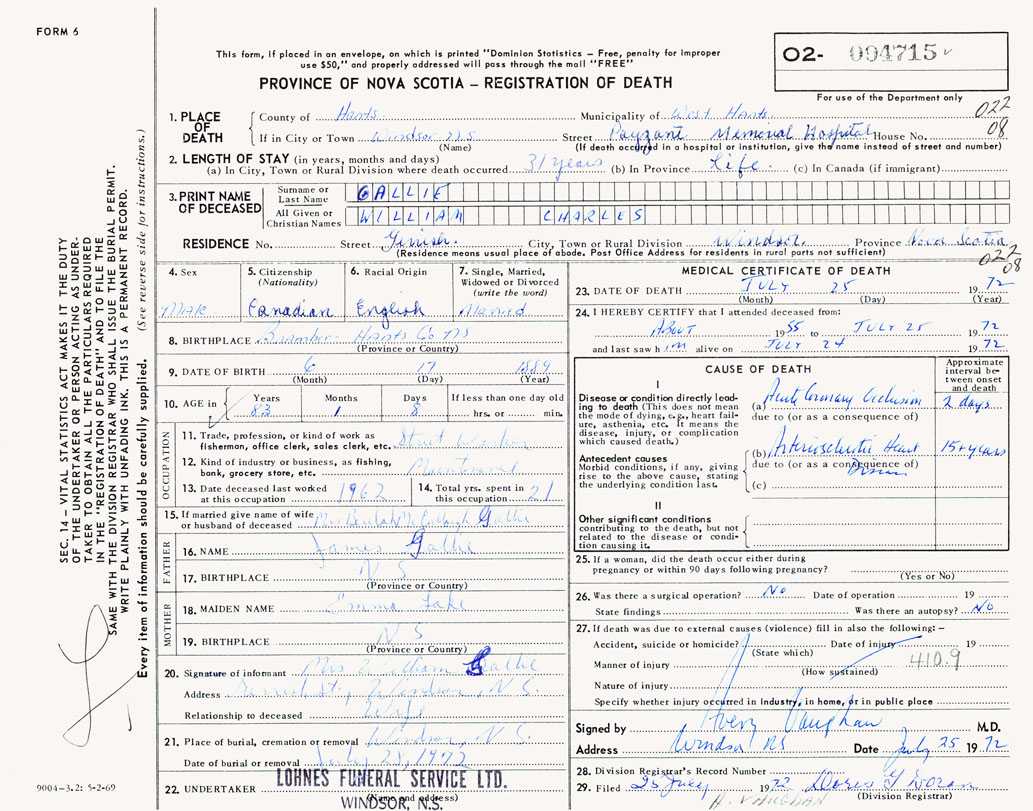 FORM 6
This form, if placed in an envelope, on which is printed "Dominion Statistics – Free, penalty for improper
use $50," and properly addressed will pass through the mail "FREE"
PROVINCE OF NOVA SCOTIA – REGISTRATION OF DEATH
02- 004715
For use of the Department only
022
08
1. PLACE OF DEATH
County of Hants Municipality of West Hants
If in City or Town Windsor N.S. Street Payzant Memorial Hospital House No.
(Name) (If death occurred in a hospital or institution, give the name instead of street and number)
2. LENGTH OF STAY (in years, months and days)
(a) In City, Town or Rural Division where death occurred 31 years (b) In Province Life. (c) In Canada (if immigrant)
3. PRINT NAME OF DECEASED
Surname or Last Name GALLIE
All Given or Christian Names WILLIAM CHARLES
RESIDENCE No. Street City, Town or Rural Division Windsor. Province Nova Scotia
(Residence means usual place of abode. Post Office Address for residents in rural parts not sufficient)
022
08
4. Sex Male
5. Citizenship (Nationality) Canadian
6. Racial Origin English
7. Single, Married, Widowed or Divorced (write the word) Married
8. BIRTHPLACE Hants Co NS
(Province or Country)
9. DATE OF BIRTH 6 17 1889
(Month) (Day) (Year)
10. AGE in Years 83 Months 1 Days 8 If less than one day old hrs. or min.
OCCUPATION
11. Trade, profession, or kind of work as
fisherman, office clerk, sales clerk, etc. Street Worker
12. Kind of industry or business, as fishing,
bank, grocery store, etc.
13. Date deceased last worked
at this occupation 1962
14. Total yrs. spent in
this occupation 21
15. If married give name of wife
or husband of deceased Mrs Beulah Gallie
FATHER
16. NAME James Gallie
17. BIRTHPLACE N S
(Province or Country)
MOTHER
18. MAIDEN NAME Emma
19. BIRTHPLACE N S
(Province or Country)
20. Signature of informant Mrs William Gallie
Address St., Windsor, N.S.
Relationship to deceased Wife
21. Place of burial, cremation or removal Windsor, N.S.
Date of burial or removal July 28, 1972
22. UNDERTAKER LOHNES FUNERAL SERVICE LTD.
(Name and address)
WINDSOR, N.S.
MEDICAL CERTIFICATE OF DEATH
23. DATE OF DEATH JULY 25 19 72
(Month) (Day) (Year)
24. I HEREBY CERTIFY that I attended deceased from:
About 19 55 to JULY 25 19 72
and last saw him alive on JULY 24 19 72
CAUSE OF DEATH
Approximate interval between onset and death
I
Disease or condition directly leading to death (This does not mean the mode of dying, e.g., heart failure, asthenia, etc. It means the disease, injury, or complication which caused death.)
(a) Acute Coronary Occlusion 2 days
due to (or as a consequence of)
Antecedent causes
Morbid conditions, if any, giving rise to the above cause, stating the underlying condition last.
(b) Arteriosclerotic Heart Disease 15+ years
due to (or as a consequence of)
(c)
II
Other significant conditions
contributing to the death, but not related to the disease or condition causing it.
25. If a woman, did the death occur either during
pregnancy or within 90 days following pregnancy?
(Yes or No)
26. Was there a surgical operation? No Date of operation 19
State findings Was there an autopsy? No
27. If death was due to external causes (violence) fill in also the following: –
Accident, suicide or homicide? Date of injury 19
(State which)
410.9
Manner of injury
(How sustained)
Nature of injury
Specify whether injury occurred in industry, in home, or in public place
Signed by Avery Vaughan M.D.
Address Windsor NS Date July 25 19 72
28. Division Registrar's Record Number
29. Filed 25 July 19 72 Doris
(Division Registrar)
A. VAUGHAN
SEC. 14 – VITAL STATISTICS ACT MAKES IT THE DUTY
OF THE UNDERTAKER OR PERSON ACTING AS UNDER-
TAKER TO OBTAIN ALL THE PARTICULARS REQUIRED
IN THE "REGISTRATION OF DEATH" AND TO FILE THE
SAME WITH THE DIVISION REGISTRAR WHO SHALL ISSUE THE BURIAL PERMIT.
WRITE PLAINLY WITH UNFADING INK. THIS IS A PERMANENT RECORD.
Every item of information should be carefully supplied. (See reverse side for instructions.)
9004–3.2: 5-2-69